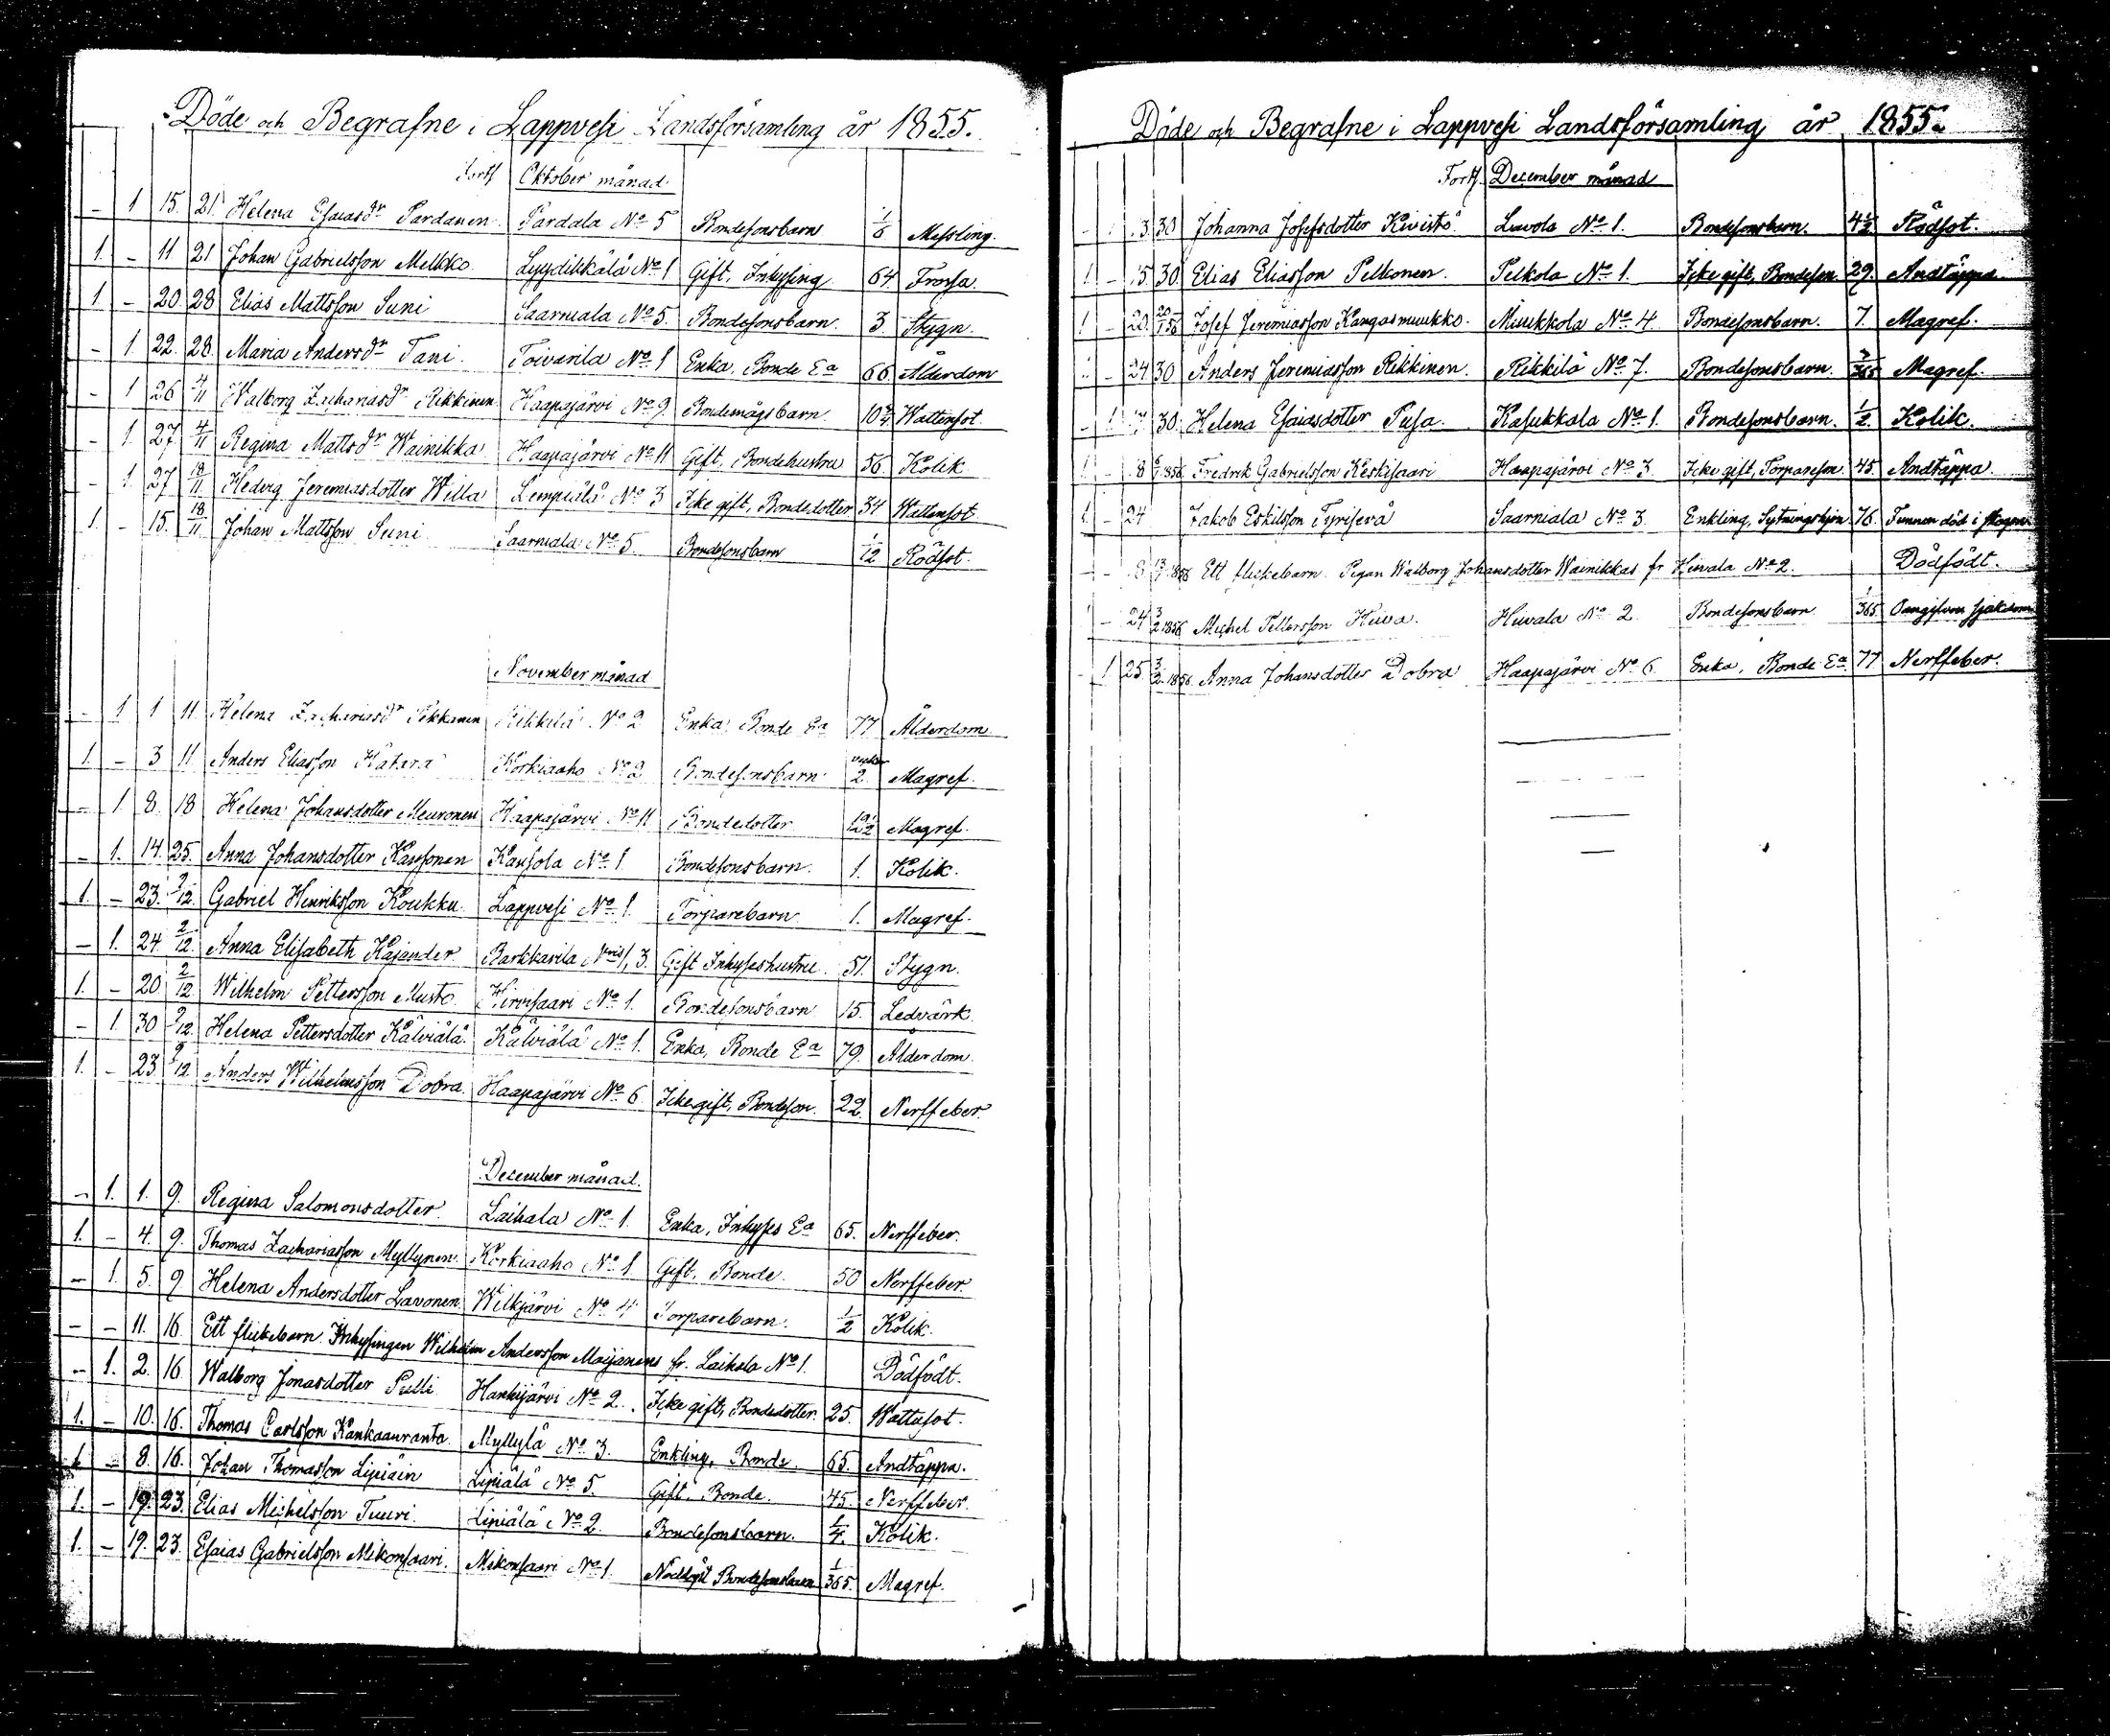 Döde och Begrafne i Lappvesi Landsförsamling år 1855.
Forts. Oktober månad
– 1 15. 21. Helena Esaiasdr Pardanen Pardala No 5 Bondesonsbarn Messling.
1. – 11 21 Johan Gabrielsson Melkko Lyydikkälä No 1 Gift, Inhysing 64 Frossa.
1. – 20 28 Elias Mattsson Suni Saarniala No 5. Bondesonsbarn. 3. Stygn.
– 1. 22. 28. Maria Andersdr Tani. Toivarila No 1 Enka, Bonde Ea 66. Ålderdom
– 1 26 4/11 Walborg Zachariasdr Rikkinen Haapajärvi No 9. Bondemågsbarn Wattensot.
– 1. 27. 4/11 Regina Mattsdr Wainikka Haapajärvi No 11 Gift, Bondehustru 56. Kolik.
– 1 27 18/11 Hedvig Jeremiasdotter Willa Lempiälä No 3 Icke gift, Bondedotter 34 Wattensot
1. – 15. 18/11 Johan Mattsson Suni Saarniala No 5. Bondesonsbarn 1/12 Rödsot.
November månad
– 1 1 11. Helena Zachariasdr Rikkilä No 2 Enka, Bonde Ea 77 Ålderdom
1. – 3 11 Anders Eliasson Korkiaaho No 2 Bondesonsbarn veckor 2. Magref.
– 1. 8. 18 Helena Johansdotter Meuronen Haapajärvi No 11 Bondedotter Magref.
– 1. 14. 25. Anna Johansdotter Kaussonen Kausola No 1 Bondesonsbarn. 1. Kolik.
1. – 23. 2/12. Gabriel Henriksson Koukku. Lappvesi No 1. Torparebarn 1. Magref.
– 1. 24. 2/12. Anna Elisabeth Kajander Karkkarila 1, 3. Gift Inhyseshustru 51. Stygn.
1. – 20 2/12 Wilhelm Pettersson Musto Hirvisaari No 1. Bondesonsbarn 15. Ledvärk.
– 1. 30 9/12. Helena Pettersdotter Kälviälä. Kälviälä No 1. Enka, Bonde Ea 79. Ålderdom.
1. – 23 9/12 Anders Wilhelmsson Dobra. Haapajärvi No 6. Icke gift, Bondeson. 22. Nerffeber.
December månad.
– 1. 1. 9. Regina Salomonsdotter. Laihala No 1. Enka, Inhyses Ea 65. Nerffeber.
1. – 4. 9. Thomas Zachariasson Myllynen. Korkiaaho No 1 Gift, Bonde. 50 Nerffeber.
– 1. 5. 9 Helena Andersdotter Lavonen. Wilkjärvi No 4 Torparebarn. 1/2 Kolik.
– – 11. 16. Ett flickebarn. Inhysingen Wilhelm Andersson Maijanens fr. Laihala No 1. Dödfödt.
– 1. 2. 16. Walborg Jonasdotter Pulli Hanhijärvi No 2. Icke gift, Bondedotter. 25. Wattusot.
1. – 10. 16. Thomas Carlsson Kankaanranta. Myllylä No 3. Enkling, Bonde. 65. Andtäppa.
1. – 8. 16. Johan Thomasson Lipiäin Lipiälä No 5. Gift, Bonde. 45. Nerffeber.
1. – 19. 23. Elias Michelsson Tuuri. Lipiälä No 2. Bondesonsbarn. 1/4. Kolik.
1. – 19. 23. Esaias Gabrielsson Mikonsaari. Mikonsaari No 1. Nöddöpt Bondesonsbarn 1/365. Magref.
Döde och Begrafne i Lappvesi Landsförsamling år 1855.
Forts. December månad
3. 30 Johanna Josefsdotter Kivistö Luvola No 1. Bondesonsbarn. 4 1/2 Rödsot.
1 – 15. 30. Elias Eliasson Pelkonen. Pelkola No 1. Icke gift, Bondeson. 29. Andtäppa.
1 – 20. 20/1 56 Josef Jeremiasson Kangasmuukko. Muukkola No 4. Bondesonsbarn. 7. Magref.
– 24 30 Anders Jeremiasson Rikkinen. Rikkilä No 7. Bondesonsbarn. Magref.
– 1 7 30. Helena Esaiasdotter Pusa. Kasukkala No 1. Bondesonsbarn. 1/2. Kolik.
1 – 8 6/1 1856 Fredrik Gabrielsson Keskisaari Haapajärvi No 3. Icke gift, Torpareson. 45. Andtäppa.
1. – 24 Jakob Eskilsson Tyrisevä Saarniala No 3. Enkling, Sytningshjon 76. Funnen död i skogen
– – 8. 1856 Ett flickebarn. Pigan Walborg Johansdotter Wainikkas fr. Huvala No 2. Dödfödt.
1 – 24 3/2 1856 Michel Pettersson Huva. Huvala No 2. Bondesonsbarn 1/365 Oangifven sjukdom
– 1 25. 3/2 1856. Anna Johansdotter Dobra Haapajärvi No 6. Enka, Bonde Ea. 77 Nerffeber.